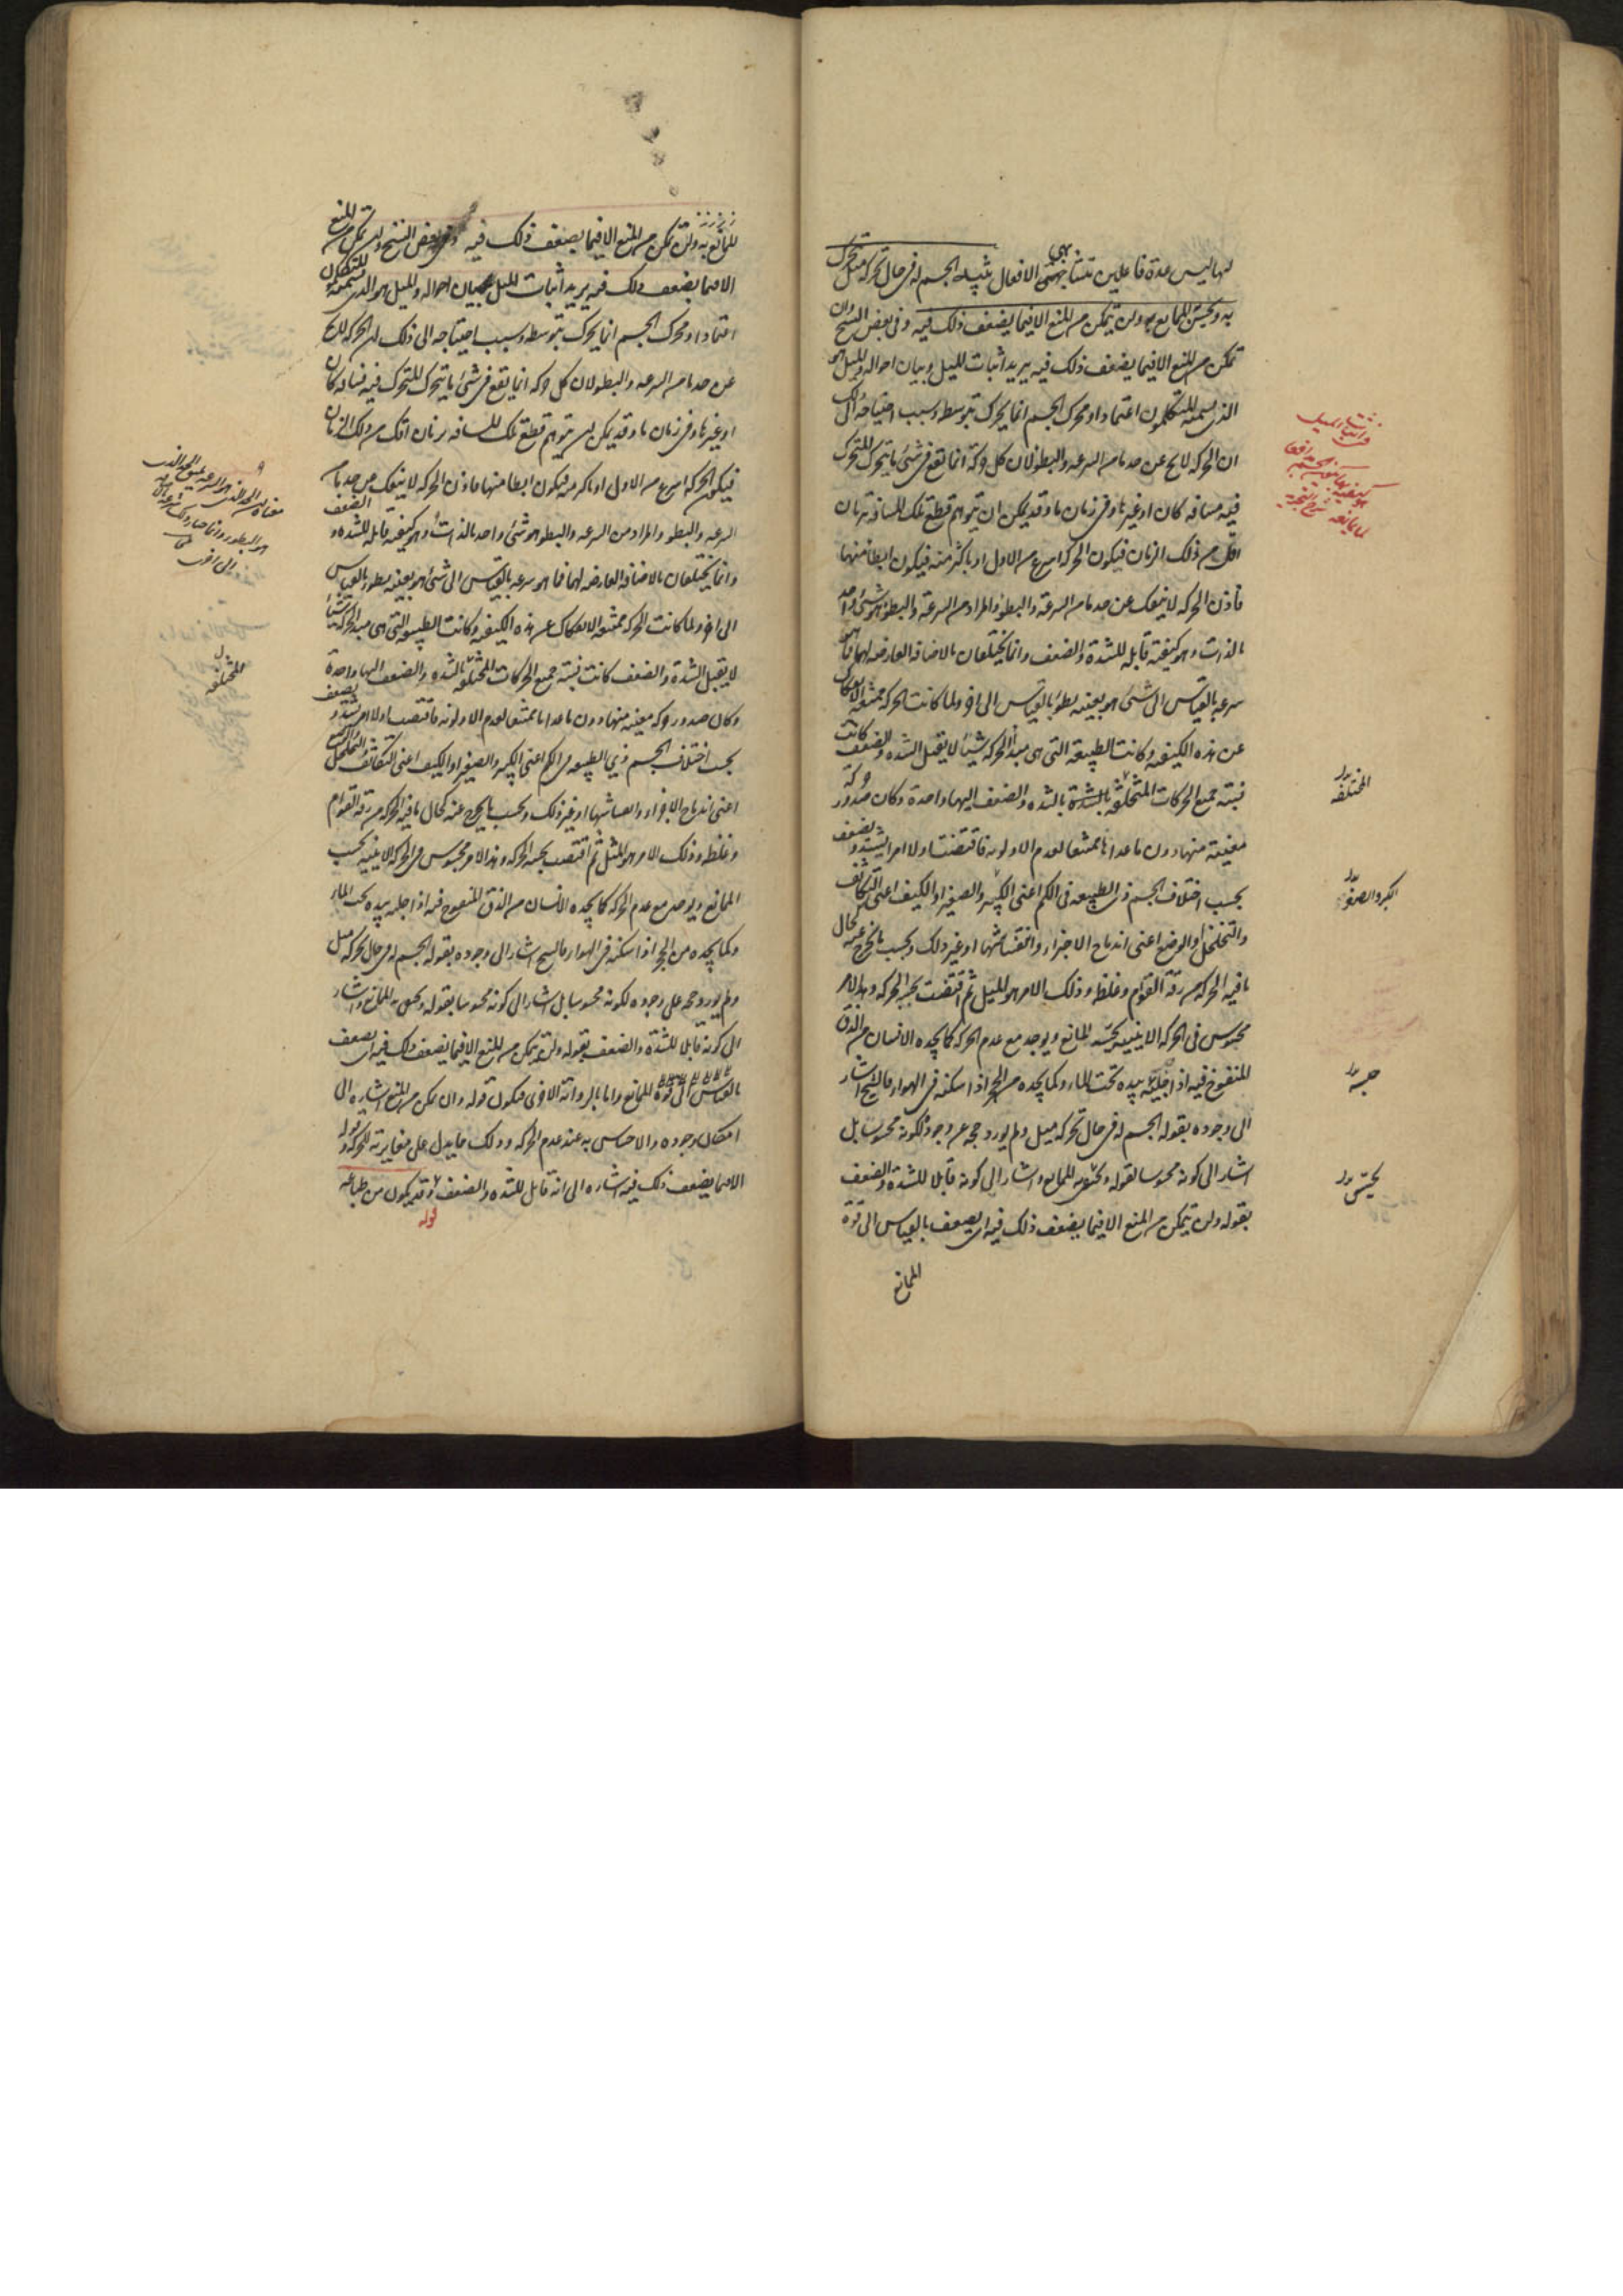 لهما ليس عدة فاعلين متشابهى الافعال تنبيه الجسم له فى حال تحركه ميل يتحرك
به ويحسّ الممانع به ولن يتمكن من المنع الا فيما يضعف ذلك فيه وفى بعض النسخ وان
تمكن من المنع الا فيما يضعف ذلك فيه يريد اثبات الميل وبيان احواله والميل هو
الذى يسميه المتكلمون اعتمادا ومحرك الجسم انما يحرك بتوسطه وسبب احتياجه الى ذلك
ان الحركة لا يخ عن حد ما من السرعة والبطؤ لان كل حركة انما تقع فى شئ ما يتحرك المتحرك
فيه مسافة كان او غيرها وفى زمان ما وقد يمكن ان يتوهم قطع تلك المسافة بزمان
اقل من ذلك الزمان فيكون الحركة اسرع من الاول او باكثر منه فيكون ابطأ منها
فاذن الحركة لا ينفك عن حد ما من السرعة والبطؤ والمراد من السرعة والبطؤ هو شئ واحد
بالذات وهو كيفية قابلة للشدة والضعف وانما يختلفان بالاضافة العارضة لهما فما هو
سرعة بالقياس الى شئ هو بعينه بطؤ بالقياس الى اخر ولما كانت الحركة ممتنعة الانفكاك
عن هذه الكيفية وكانت الطبيعة التى هى مبدأ الحركة شيئا لا يقبل الشدة والضعف كانت
نسبة جميع الحركات المختلفة بالشدة والضعف اليها واحدة وكان صدور حركة
معينة منها دون ما عداها ممتنعا لعدم الاولوية فاقتضت اولا امرا يشتد ويضعف
بحسب اختلاف الجسم ذى الطبيعة فى الكم اعنى الكبير والصغير او الكيف اعنى التكاثف
والتخلخل او الوضع اعنى اندماج الاجزاء وانتفاشها او غير ذلك وبحسب ما يخرج عنه كحال
ما فيه الحركة من رقة القوام وغلظه وذلك الامر هو الميل ثم اقتضت بحسبه الحركة وهذا الامر
محسوس فى الحركة الاينية يحسّه الممانع ويوجد مع عدم الحركة كما يجده الانسان من الزق
المنفوخ فيه اذا حبسه بيده تحت الماء وكما يجده من الحجر اذا اسكنه فى الهواء فالشيخ اشار
الى وجوده بقوله الجسم له فى حال تحركه ميل ولم يورد حجة عن وجوده لكونه محسوسا بل
اشار الى كونه محسوسا بقوله ويحس به الممانع واشار الى كونه قابلا للشدة والضعف
بقوله ولن يتمكن من المنع الا فيما يضعف ذلك فيه اى يضعف بالقياس الى قوة
الممانع
المختلفة
الكبر والصغر
حبسه
يحسّ
الممانع به ولن يتمكن من المنع الا فيما يضعف ذلك فيه وفى بعض النسخ وان تمكن من المنع
الا فيما يضعف ذلك فيه يريد اثبات الميل وبيان احواله والميل هو الذى يسميه المتكلمون
اعتمادا ومحرك الجسم انما يحرك بتوسطه وسبب احتياجه الى ذلك ان الحركة لا يخ
عن حد ما من السرعة والبطؤ لان كل حركة انما تقع فى شئ ما يتحرك المتحرك فيه مسافة كان
او غيرها وفى زمان ما وقد يمكن ان يتوهم قطع تلك المسافة بزمان اقل من ذلك الزمان
فيكون الحركة اسرع من الاول او باكثر منه فيكون ابطا منها فاذن الحركة لا ينفك عن حد ما من
السرعة والبطؤ والمراد من السرعة والبطؤ هو شئ واحد بالذات وهو كيفية قابلة للشدة والضعف
وانما يختلفان بالاضافة العارضة لهما فما هو سرعة بالقياس الى شئ هو بعينه بطؤ بالقياس
الى اخر ولما كانت الحركة ممتنعة الانفكاك عن هذه الكيفية وكانت الطبيعة التى هى مبدأ الحركة شيئا
لا يقبل الشدة والضعف كانت نسبة جميع الحركات المختلفة بالشدة والضعف اليها واحدة
وكان صدور حركة معينة منها دون ما عداها ممتنعا لعدم الاولوية فاقتضت اولا امرا يشتد ويضعف
بحسب اختلاف الجسم ذى الطبيعة فى الكم اعنى الكبير والصغير او الكيف اعنى التكاثف والتخلخل او الوضع
اعنى اندماج الاجزاء وانتفاشها او غير ذلك وبحسب ما يخرج عنه كحال ما فيه الحركة من رقة القوام
وغلظه وذلك الامر هو الميل ثم اقتضت بحسبه الحركة وهذا الامر محسوس فى الحركة الاينية يحسه
الممانع ويوجد مع عدم الحركة كما يجده الانسان من الزق المنفوخ فيه اذا حبسه بيده تحت الماء
وكما يجده من الحجر اذا اسكنه فى الهواء فالشيخ اشار الى وجوده بقوله الجسم له فى حال تحركه ميل
ولم يورد حجة على وجوده لكونه محسوسا بل اشار الى كونه محسوسا بقوله ويحس به الممانع واشار
الى كونه قابلا للشدة والضعف بقوله ولن يتمكن من المنع الا فيما يضعف ذلك فيه اى يضعف
بالقياس الى قوة الممانع واما بالرواية الاخرى فيكون قوله وان تمكن من المنع اشارة الى
امكان وجوده والاحساس به عند عدم الحركة وذلك مما يدل على مغايرته للحركة وقوله
الا فيما يضعف ذلك فيه اشارة الى انه قابل للشدة والضعف وقد يكون من طباعه
قوله
المختلفة